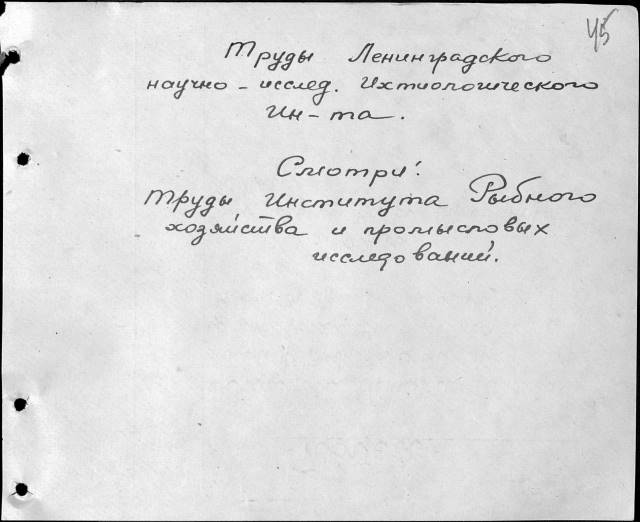 45
Труды Ленинградского
научно-исслед. Ихтиологического
Ин-та.
Смотри:
Труды Института Рыбного
хозяйства и промысловых
исследований.